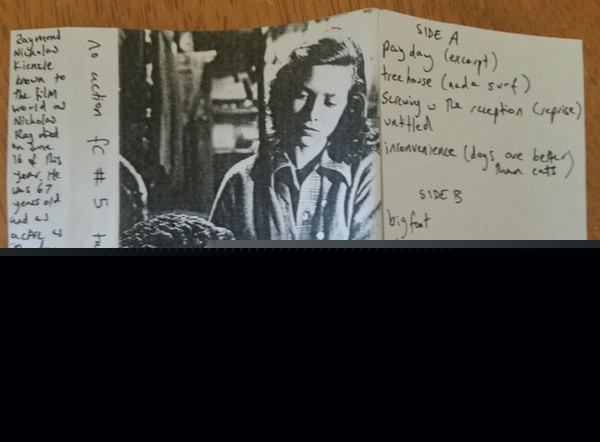 Raymond
Nicholas
Kienzle
known to
the film
world as
Nicholas
Ray died
on June
16 of this
year. He
was 67
years old
and as
active as
no action fc #5
SIDE A
payday (excerpt)
treehouse (nada surf)
screwing w the reception (reprise)
untitled
inconvenience (dogs are better
than cats)
SIDE B
bigfoot